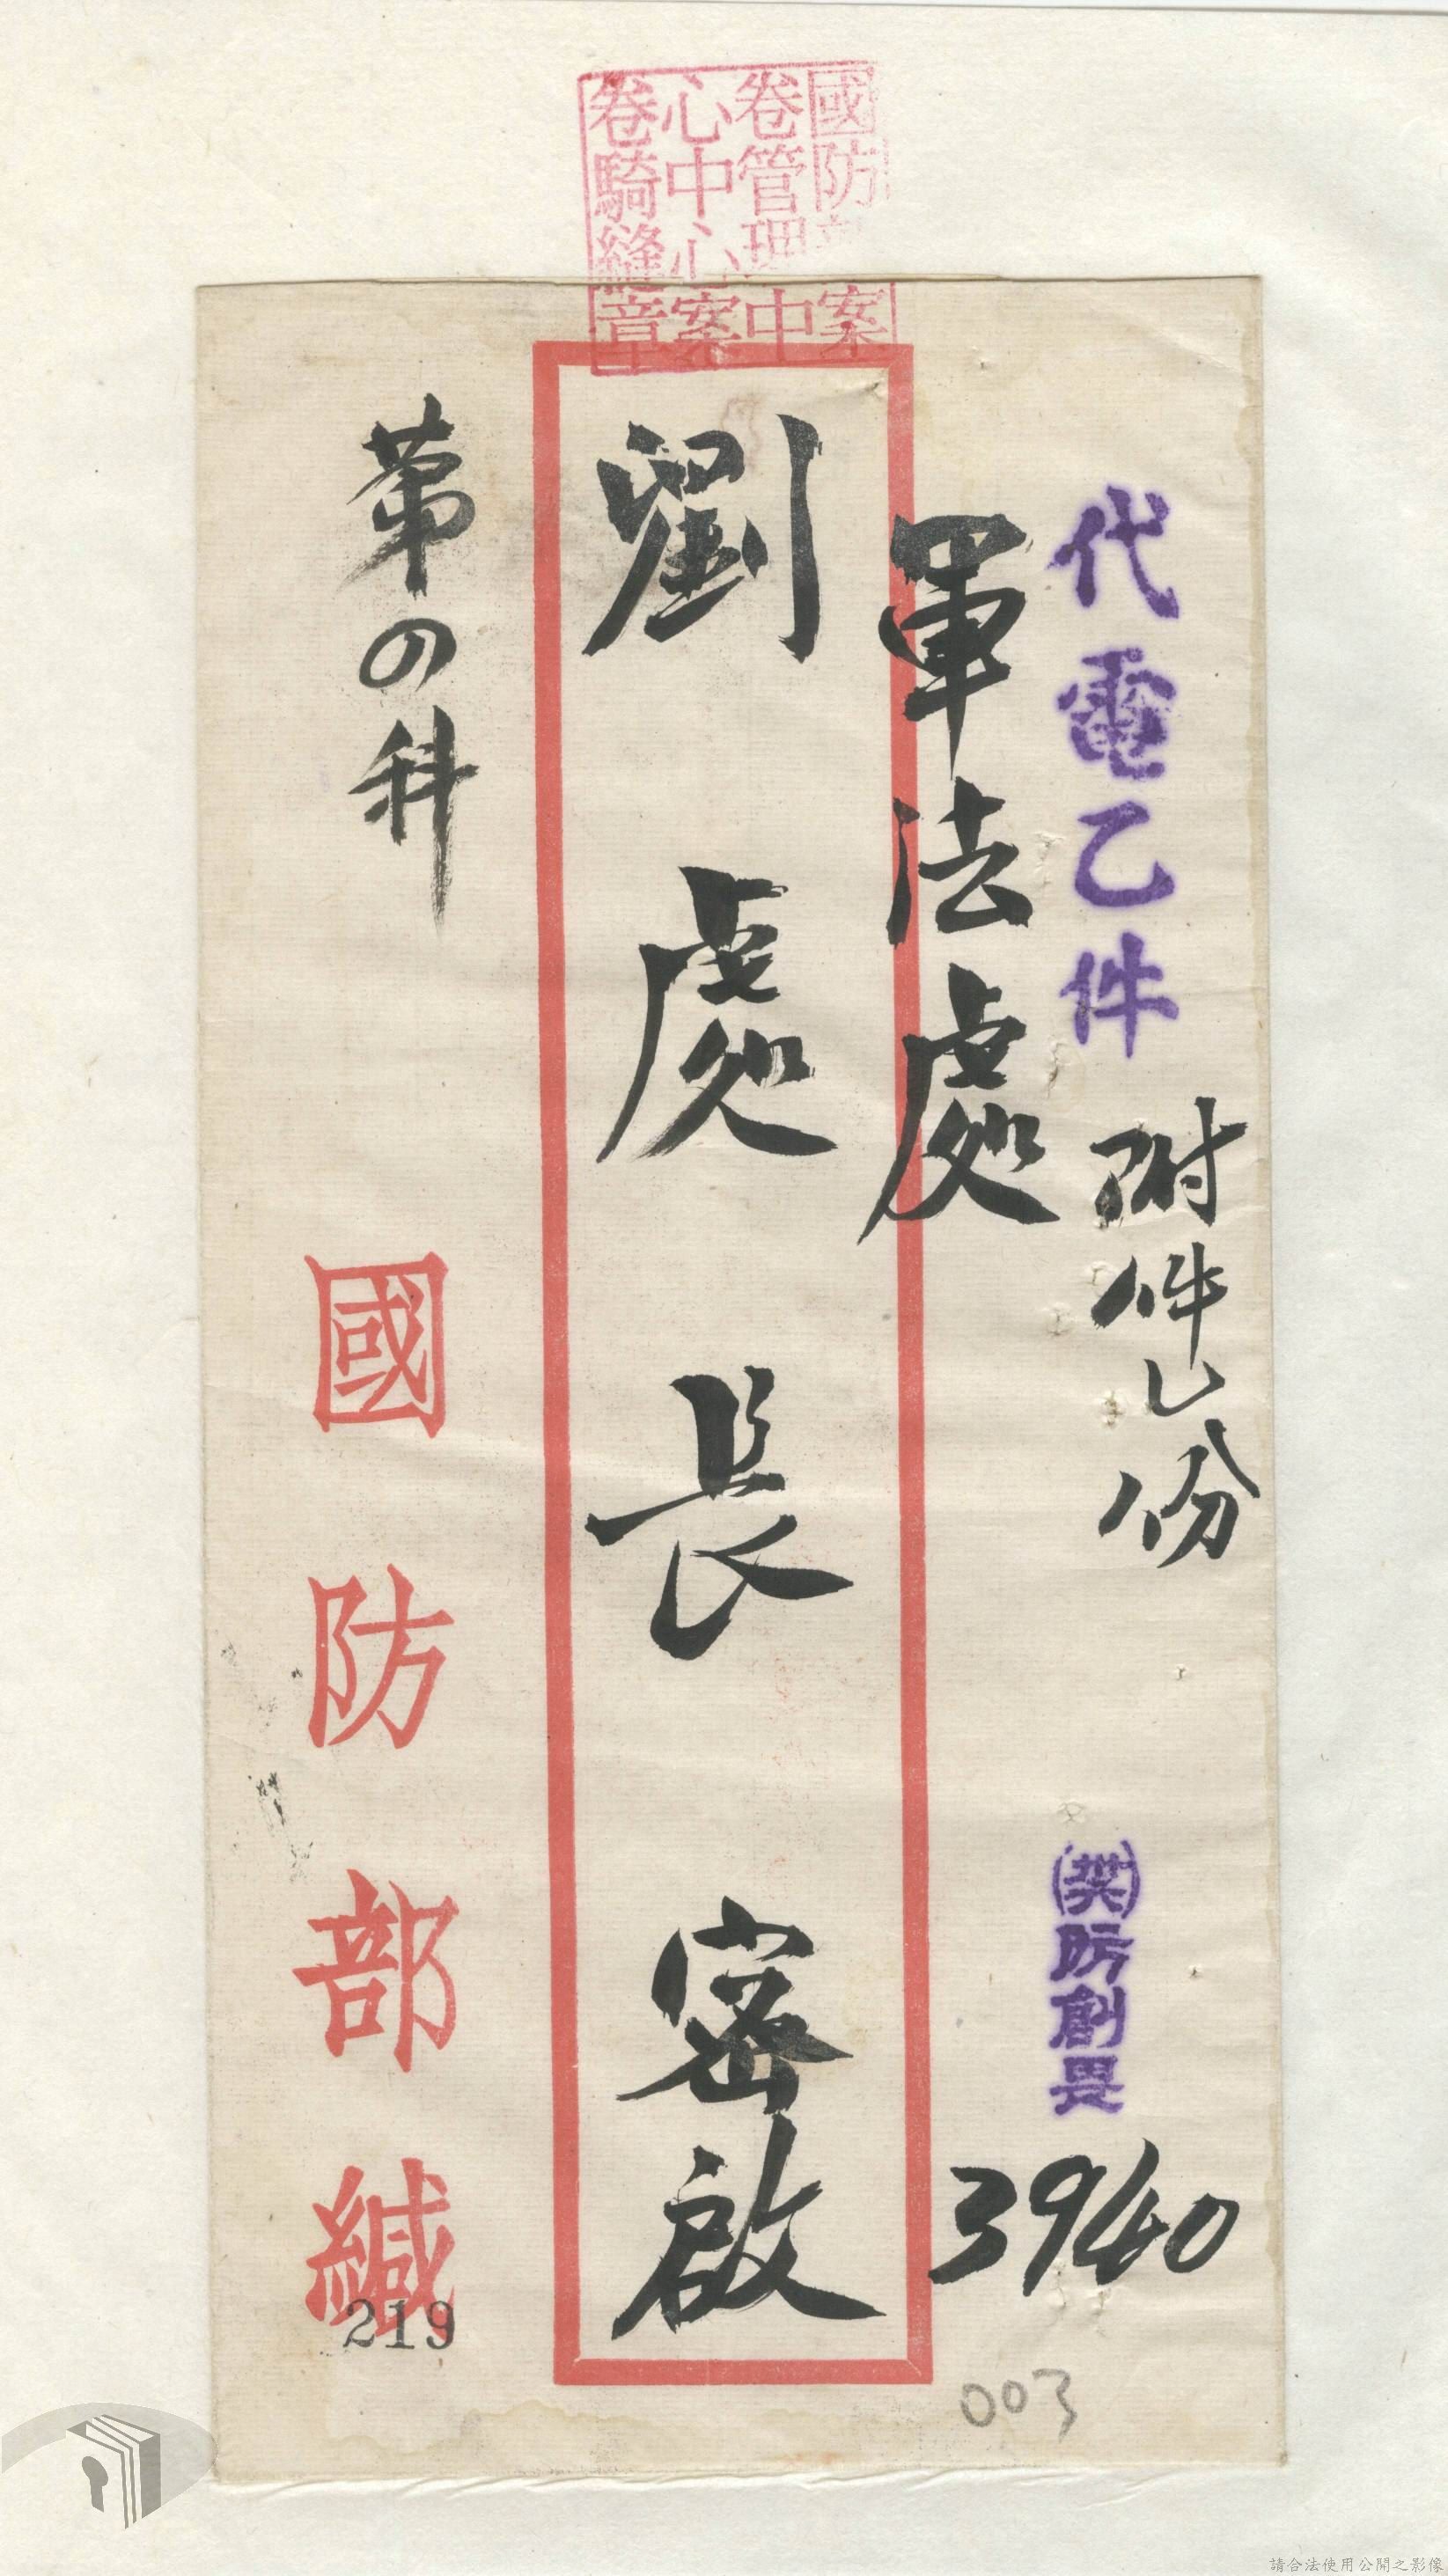 國防部案
卷管理中
心中心案
卷騎縫章
代電乙件
附件乙份
防創畏
3940
軍法處
劉處長 密啟
第四科
國防部緘
219
003
請合法使用公開之影像